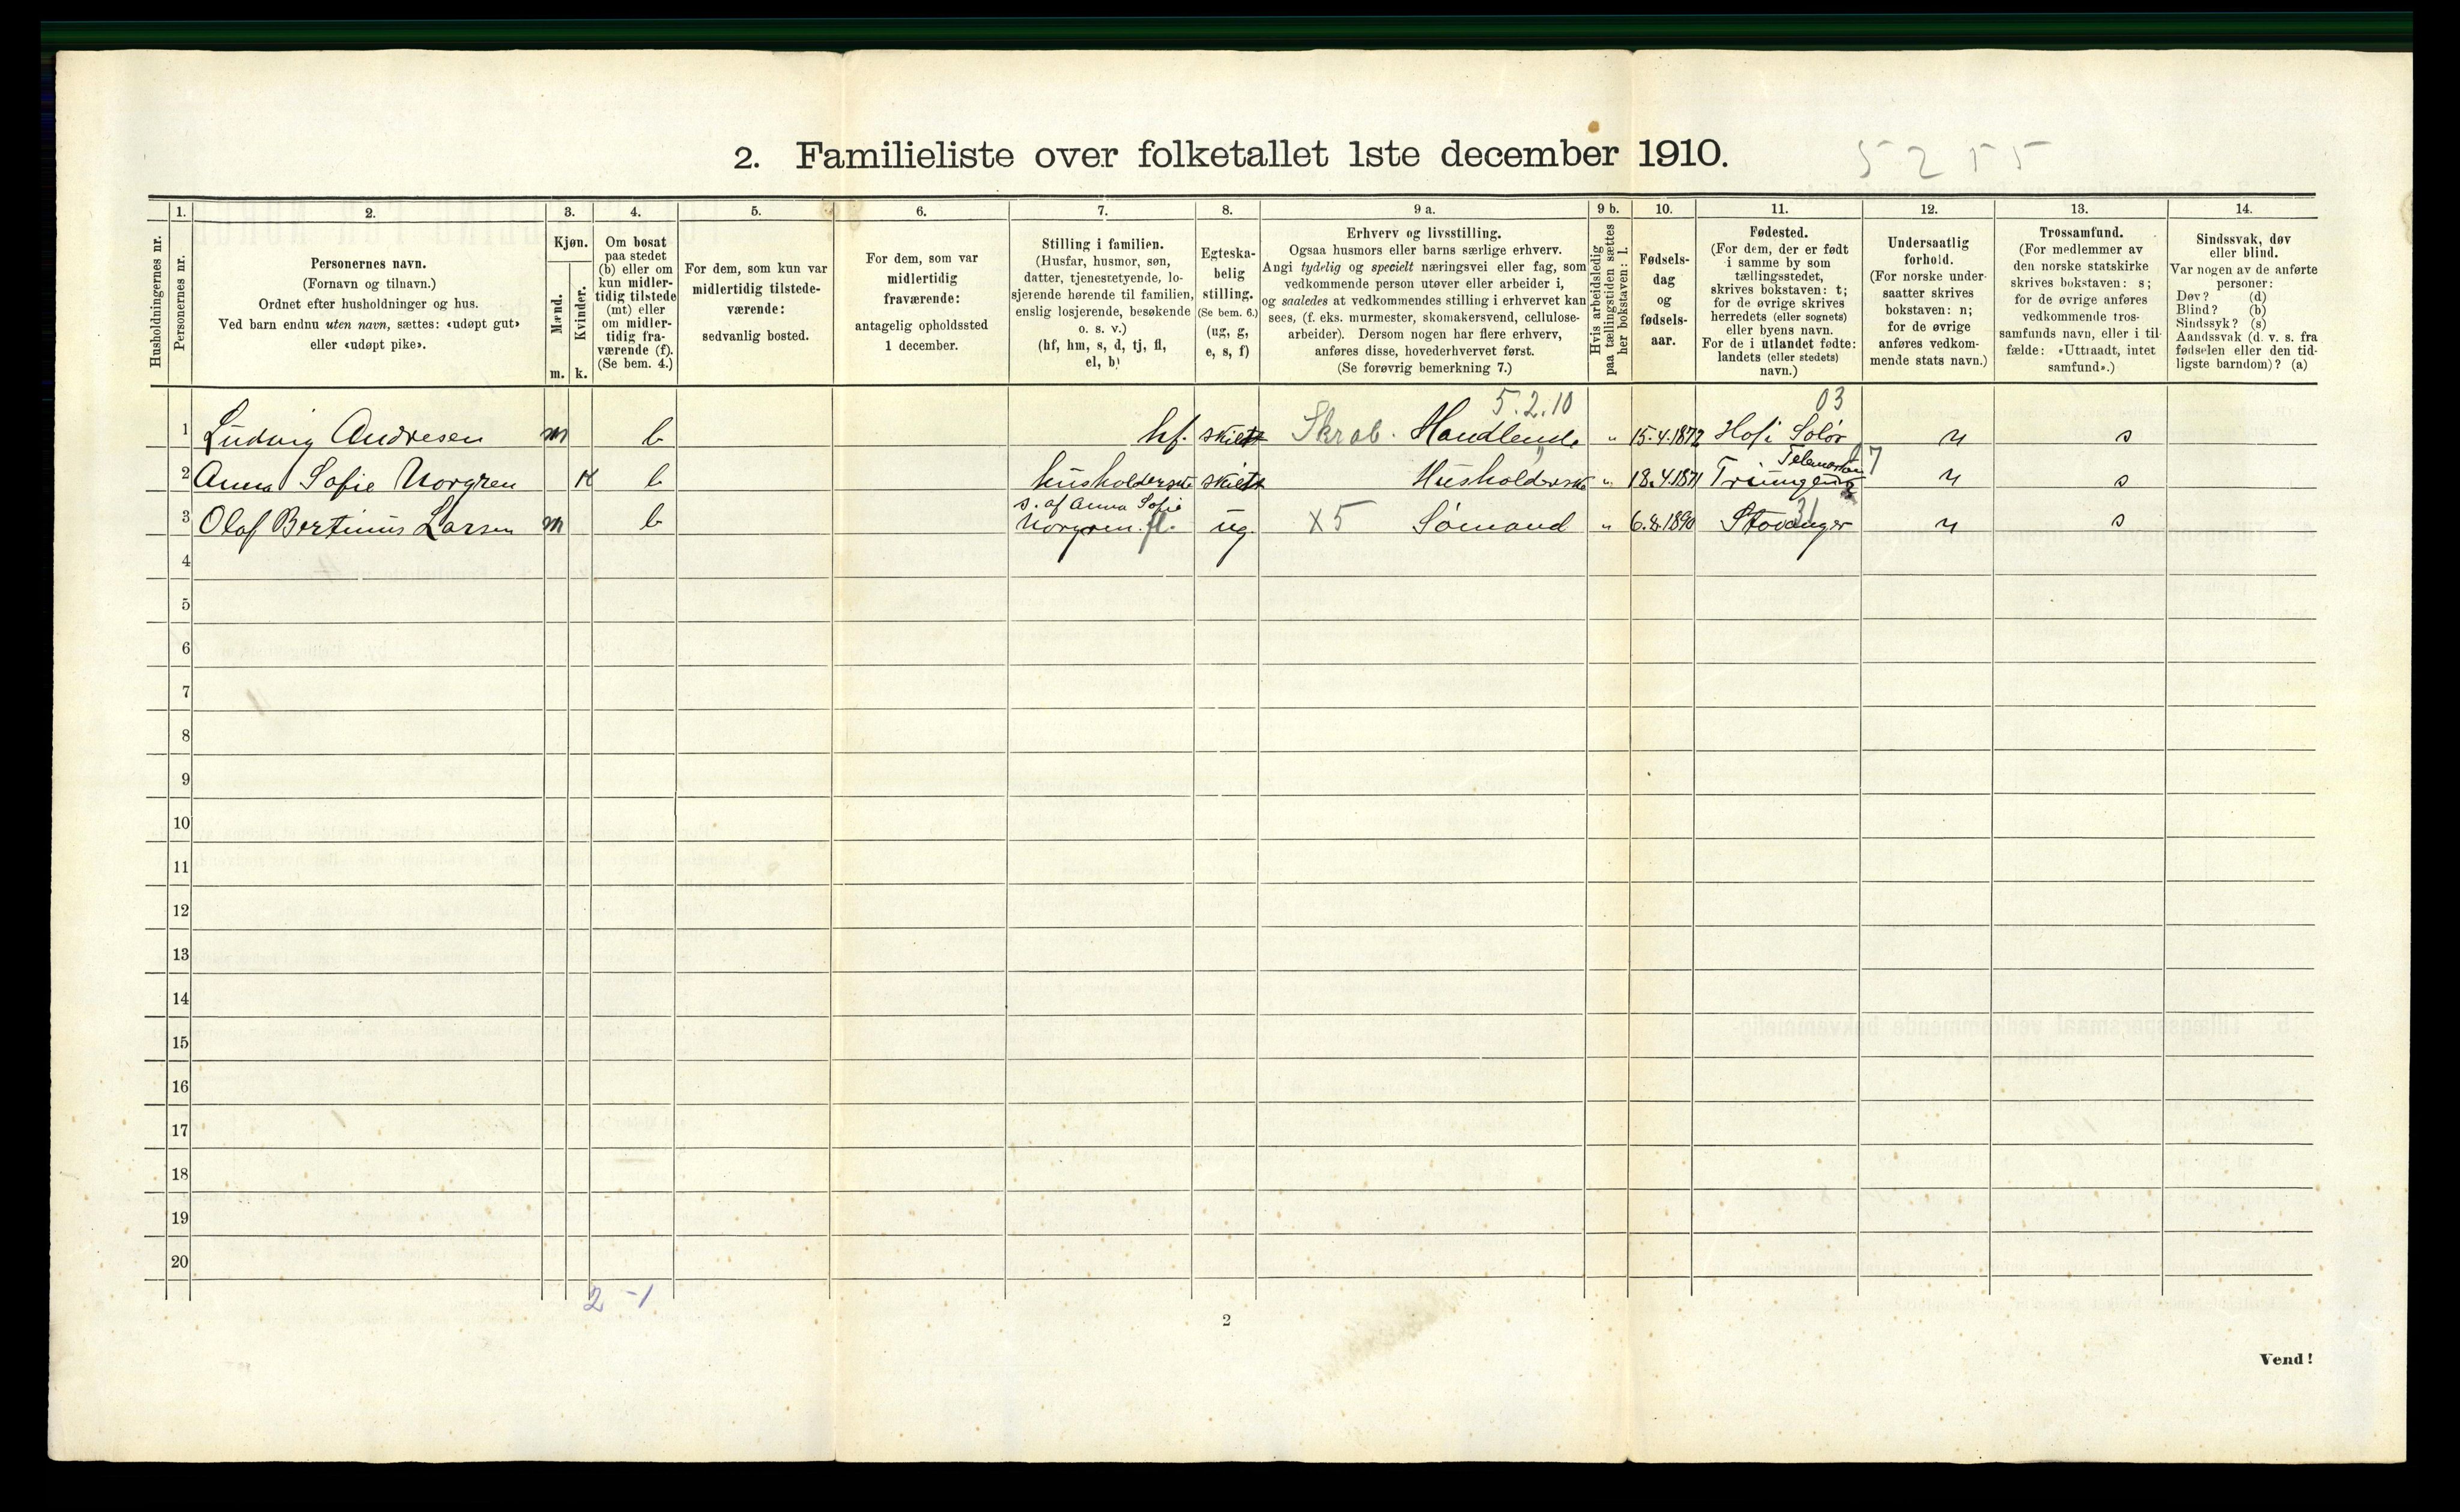 2. Familieliste over folketallet 1ste december 1910.
5255
Husholdningernes nr.
1.
Personernes nr.
2.
Personernes navn.
(Fornavn og tilnavn.)
Ordnet efter husholdninger og hus.
Ved barn endnu uten navn, sættes: «udøpt gut»
eller «udøpt pike».
3.
Kjøn.
Mænd.
Kvinder.
m. k.
4.
Om bosat
paa stedet
(b) eller om
kun midler-
tidig tilstede
(mt) eller
om midler-
tidig fra-
værende (f).
(Se bem. 4.)
5.
For dem, som kun var
midlertidig tilstede-
værende:
sedvanlig bosted.
6.
For dem, som var
midlertidig
fraværende:
antagelig opholdssted
1 december.
7.
Stilling i familien.
(Husfar, husmor, søn,
datter, tjenestetyende, lo-
sjerende hørende til familien,
enslig losjerende, besøkende
o. s. v.)
(hf, hm, s, d, tj, fl,
el, b)
8.
Egteska-
belig
stilling.
(Se bem. 6.)
(ug, g,
e, s, f)
9 a.
Erhverv og livsstilling.
Ogsaa husmors eller barns særlige erhverv.
Angi tydelig og specielt næringsvei eller fag, som
vedkommende person utøver eller arbeider i,
og saaledes at vedkommendes stilling i erhvervet kan
sees, (f. eks. murmester, skomakersvend, cellulose-
arbeider). Dersom nogen har flere erhverv,
anføres disse, hovederhvervet først.
(Se forøvrig bemerkning 7.)
9 b.
Hvis arbeidsledig
paa tællingstiden sættes
her bokstaven: l.
10.
Fødsels-
dag
og
fødsels-
aar.
11.
Fødested.
(For dem, der er født
i samme by som
tællingsstedet,
skrives bokstaven: t;
for de øvrige skrives
herredets (eller sognets)
eller byens navn.
For de i utlandet fødte:
landets (eller stedets)
navn.)
12.
Undersaatlig
forhold.
(For norske under-
saatter skrives
bokstaven: n;
for de øvrige
anføres vedkom-
mende stats navn.)
13.
Trossamfund.
(For medlemmer av
den norske statskirke
skrives bokstaven: s;
for de øvrige anføres
vedkommende tros-
samfunds navn, eller i til-
fælde: «Uttraadt, intet
samfund».)
14.
Sindssvak, døv
eller blind.
Var nogen av de anførte
personer:
Døv? (d)
Blind? (b)
Sindssyk? (s)
Aandssvak (d. v. s. fra
fødselen eller den tid-
ligste barndom)? (a)
5.2.10 03
1 Ludvig Andresen m b hf. skilt Skrab. Handlende " 15.4.1872 Hof i Solør n s
Telemarken 7
2 Anna Sofie Norgren k b husholderske skilt Husholderske " 18.4.1871 n s
s. af Anna Sofie
3 Olaf Bertinius Larsen m b Norgren. fl. ug. X5 Sømand " 6.8.1890 Stavanger 31 n s
4
5
6
7
8
9
10
11
12
13
14
15
16
17
18
19
20
2 -1
2
Vend!